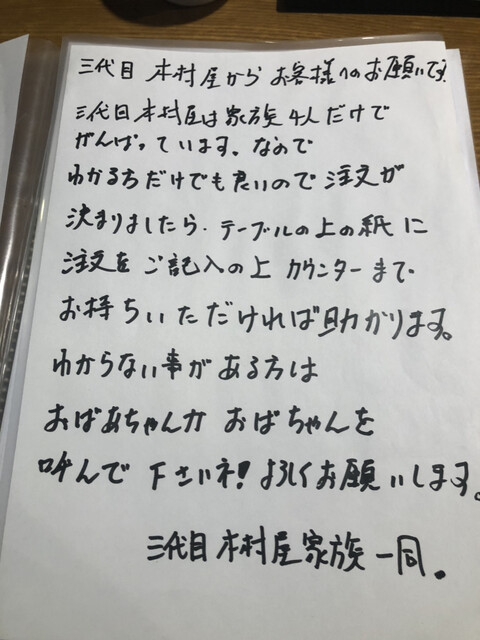 三代目 木村屋から お客様へのお願いです
三代目 木村屋は 家族 4人だけで
がんばっています。なので
わかる方だけでも良いので 注文が
決まりましたら、テーブルの上の紙に
注文を ご記入の上 カウンターまで
お持ちいただければ助かります。
わからない事がある方は
おばあちゃんか おばちゃんを
呼んで 下さいネ! よろしくお願いします。
三代目 木村屋 家族一同。